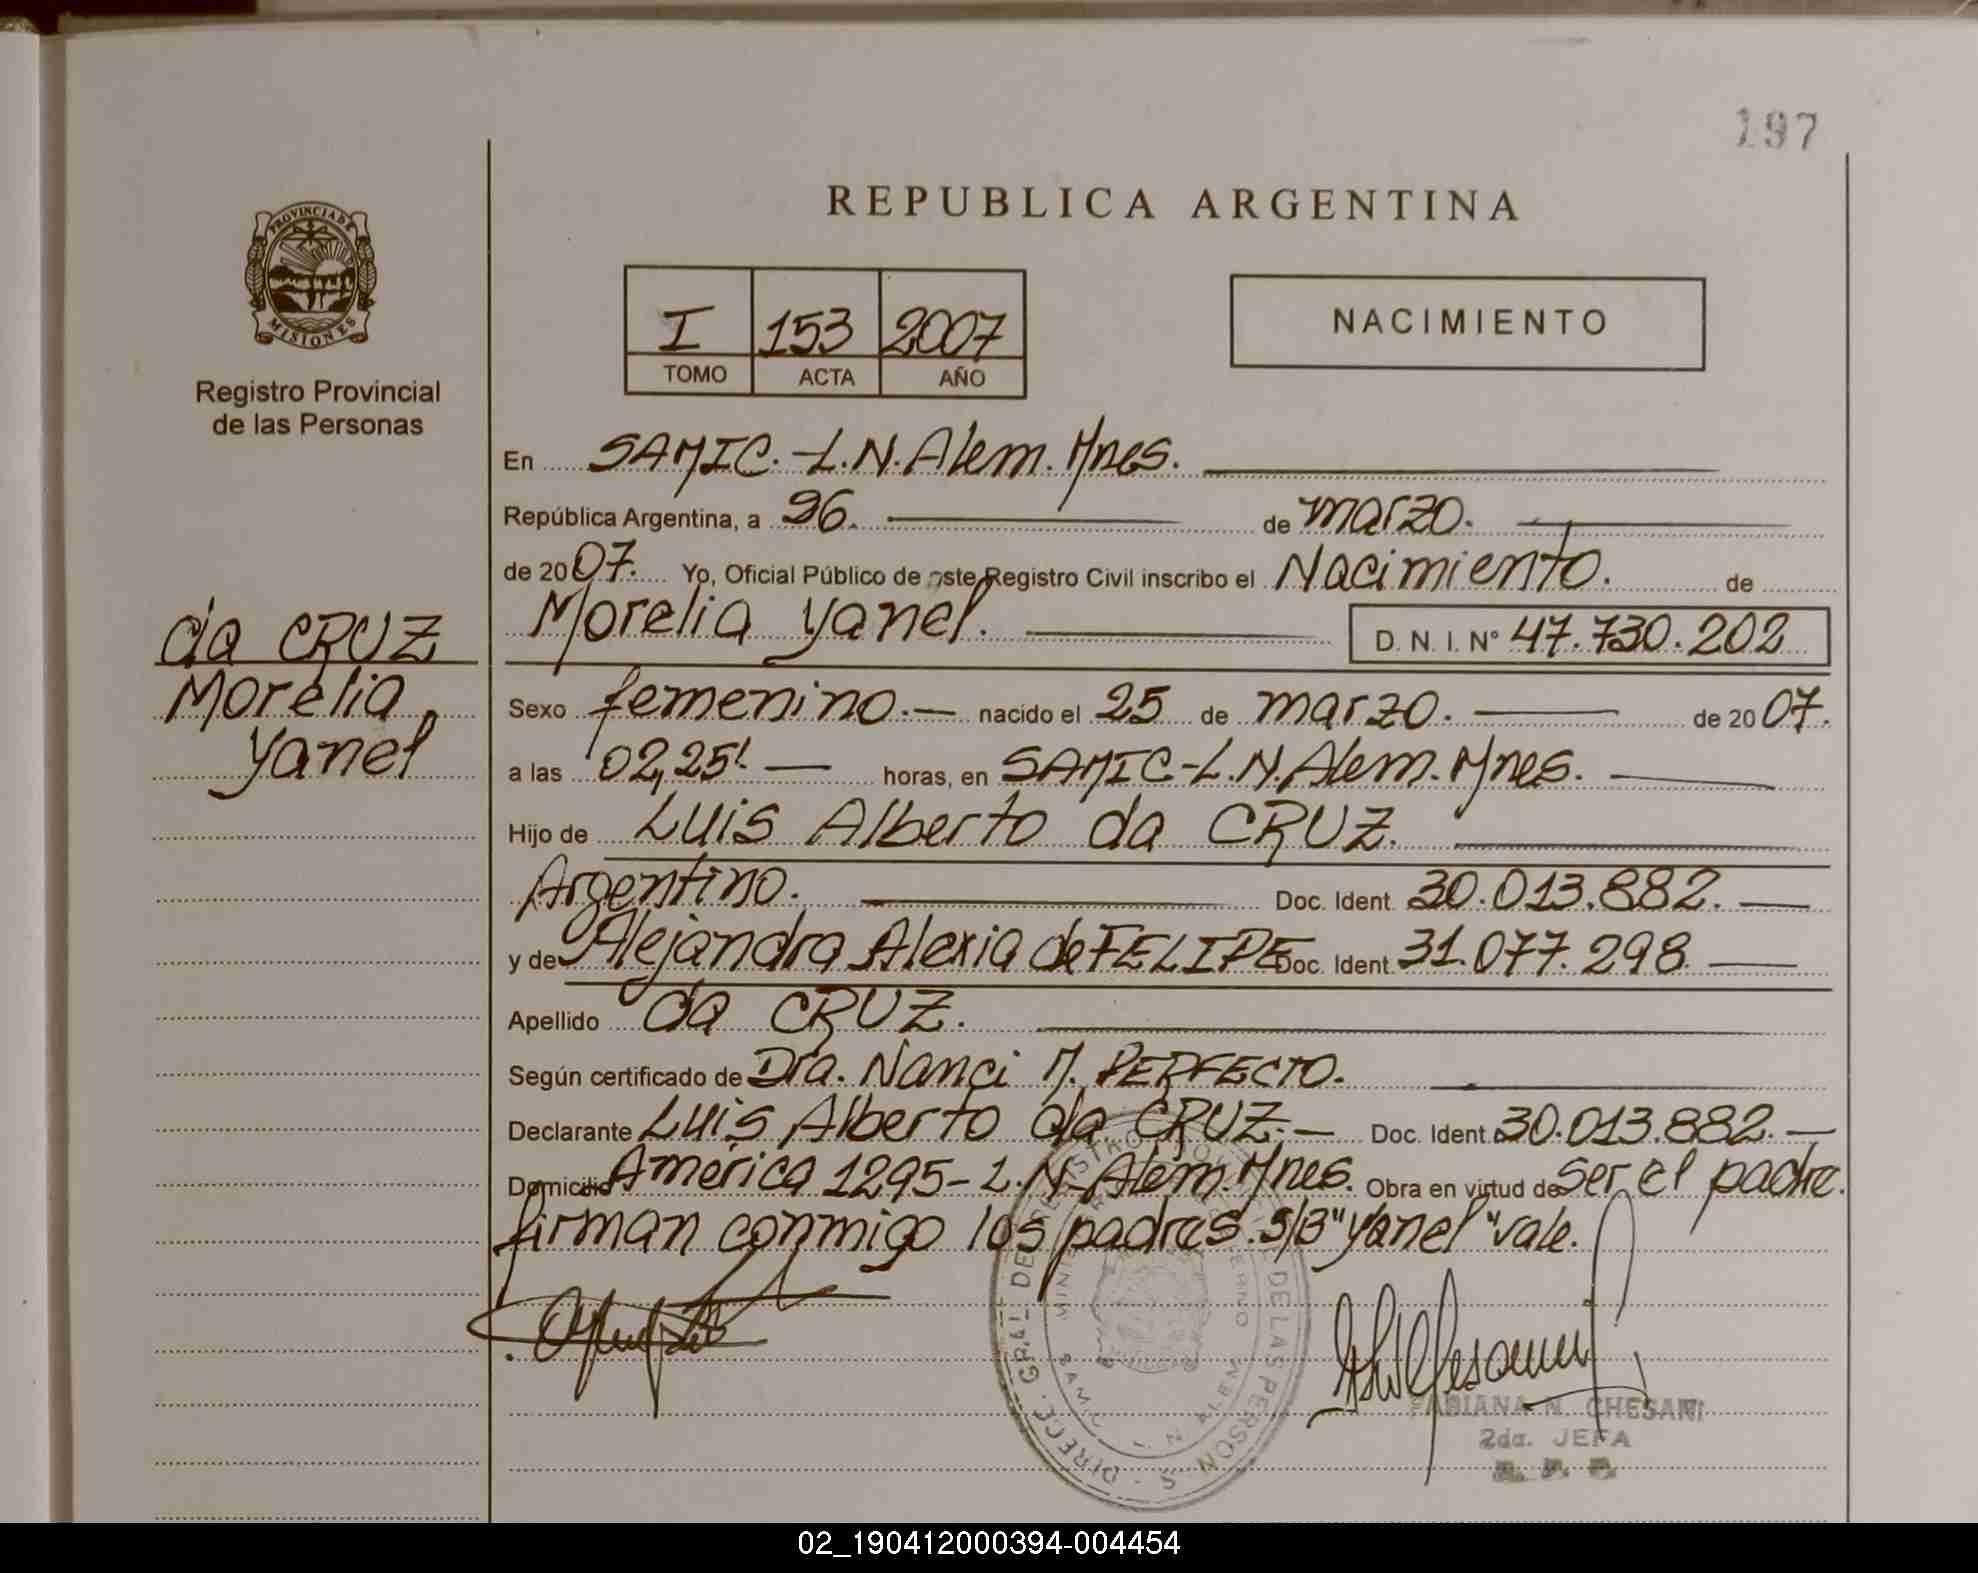 197
REPUBLICA ARGENTINA
PROVINCIA DE
MISIONES
Registro Provincial
de las Personas
I 153 2007
TOMO ACTA AÑO
NACIMIENTO
En SAMIC.-L.N.Alem.Mnes.
República Argentina, a 26. de marzo.
de 2007. Yo, Oficial Público de este Registro Civil inscribo el Nacimiento. de
Morelia Yanel. D. N. I. Nº 47.730.202
da CRUZ
Morelia
Yanel
Sexo femenino.- nacido el 25 de marzo. de 2007.
a las 02,25'. horas, en SAMIC-L.N.Alem.Mnes.
Hijo de Luis Alberto da CRUZ.
Argentino. Doc. Ident. 30.013.882.
y de Alejandra Alexia de FELIPE Doc. Ident. 31.077.298
Apellido da CRUZ.
Según certificado de Dra. Nanci M. PERFECTO.
Declarante Luis Alberto da CRUZ.- Doc. Ident. 30.013.882.-
Domicilio América 1295-L.N.Alem.Mnes. Obra en virtud de ser el padre.
firman conmigo los padres. S/B "Yanel" vale.
FABIANA N. CHESANI
2da. JEFA
02_190412000394-004454